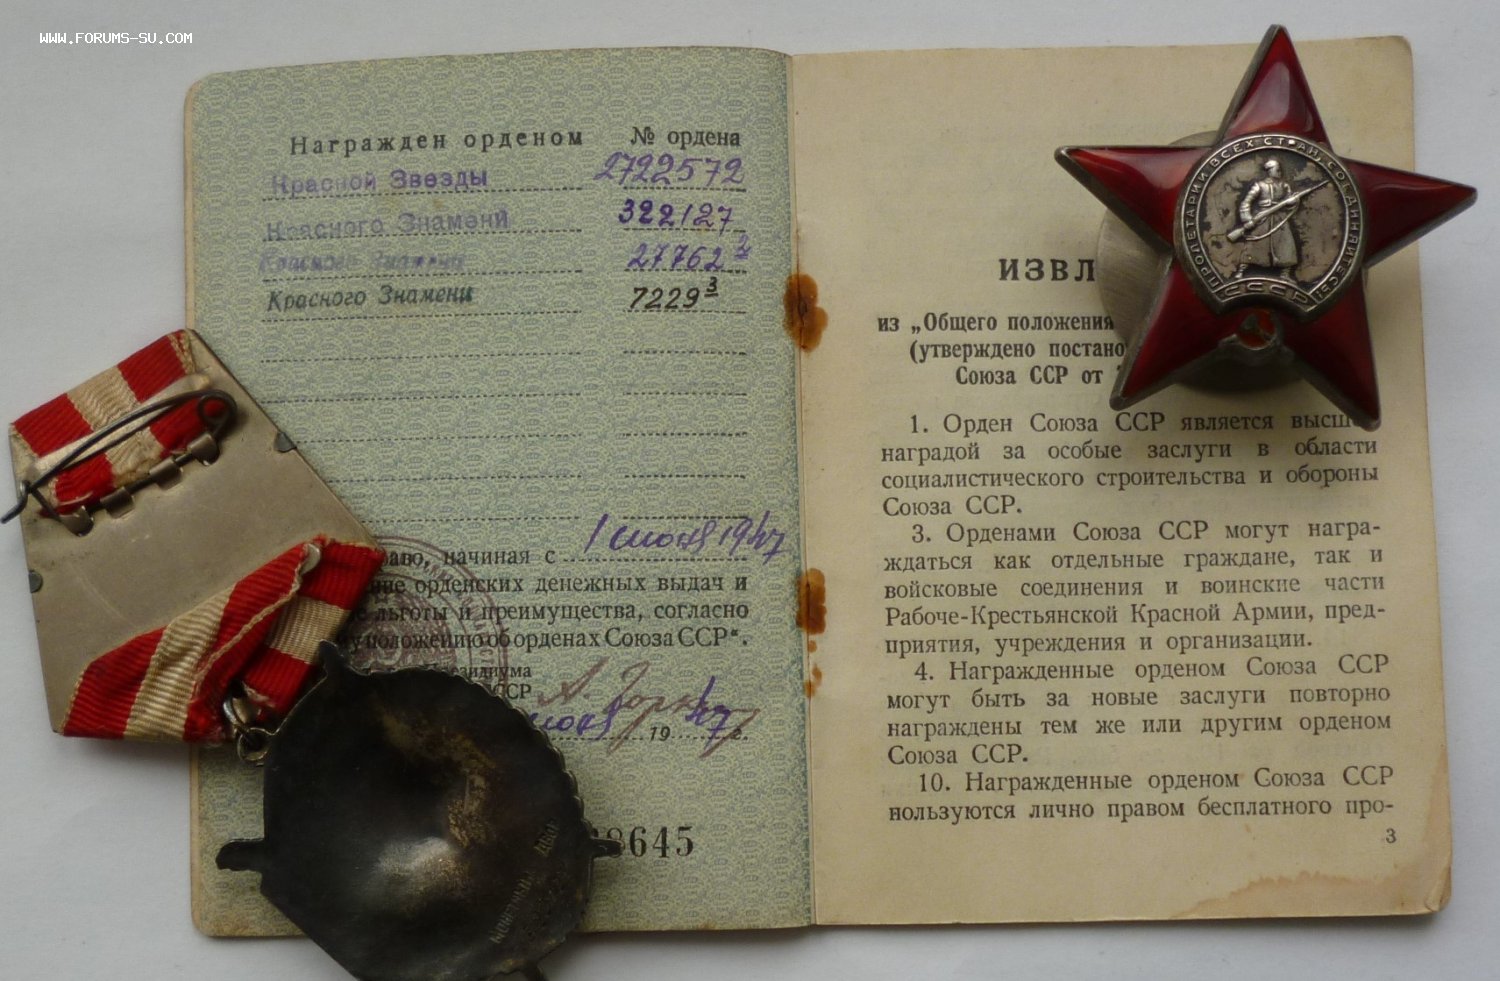 WWW.FORUMS-SU.COM
Награжден орденом № ордена
Красной Звезды 2722572
Красного Знамени 322127
Красного Знамени 27762 2
Красного Знамени 7229 3
начиная с 1 июня 1947
орденских денежных выдач и
льготы и преимущества, согласно
положению об орденах Союза ССР".
Президиума
ССР
июня 1947 г.
8645
МОНЕТНЫЙ ДВОР
ИЗВЛ
из „Общего положения
(утверждено постано
Союза ССР от
1. Орден Союза ССР является высш
наградой за особые заслуги в области
социалистического строительства и обороны
Союза ССР.
3. Орденами Союза ССР могут награ-
ждаться как отдельные граждане, так и
войсковые соединения и воинские части
Рабоче-Крестьянской Красной Армии, пред-
приятия, учреждения и организации.
4. Награжденные орденом Союза ССР
могут быть за новые заслуги повторно
награждены тем же или другим орденом
Союза ССР.
10. Награжденные орденом Союза ССР
пользуются лично правом бесплатного про-
3
ПРОЛЕТАРИИ ВСЕХ СТРАН, СОЕДИНЯЙТЕСЬ!
СССР